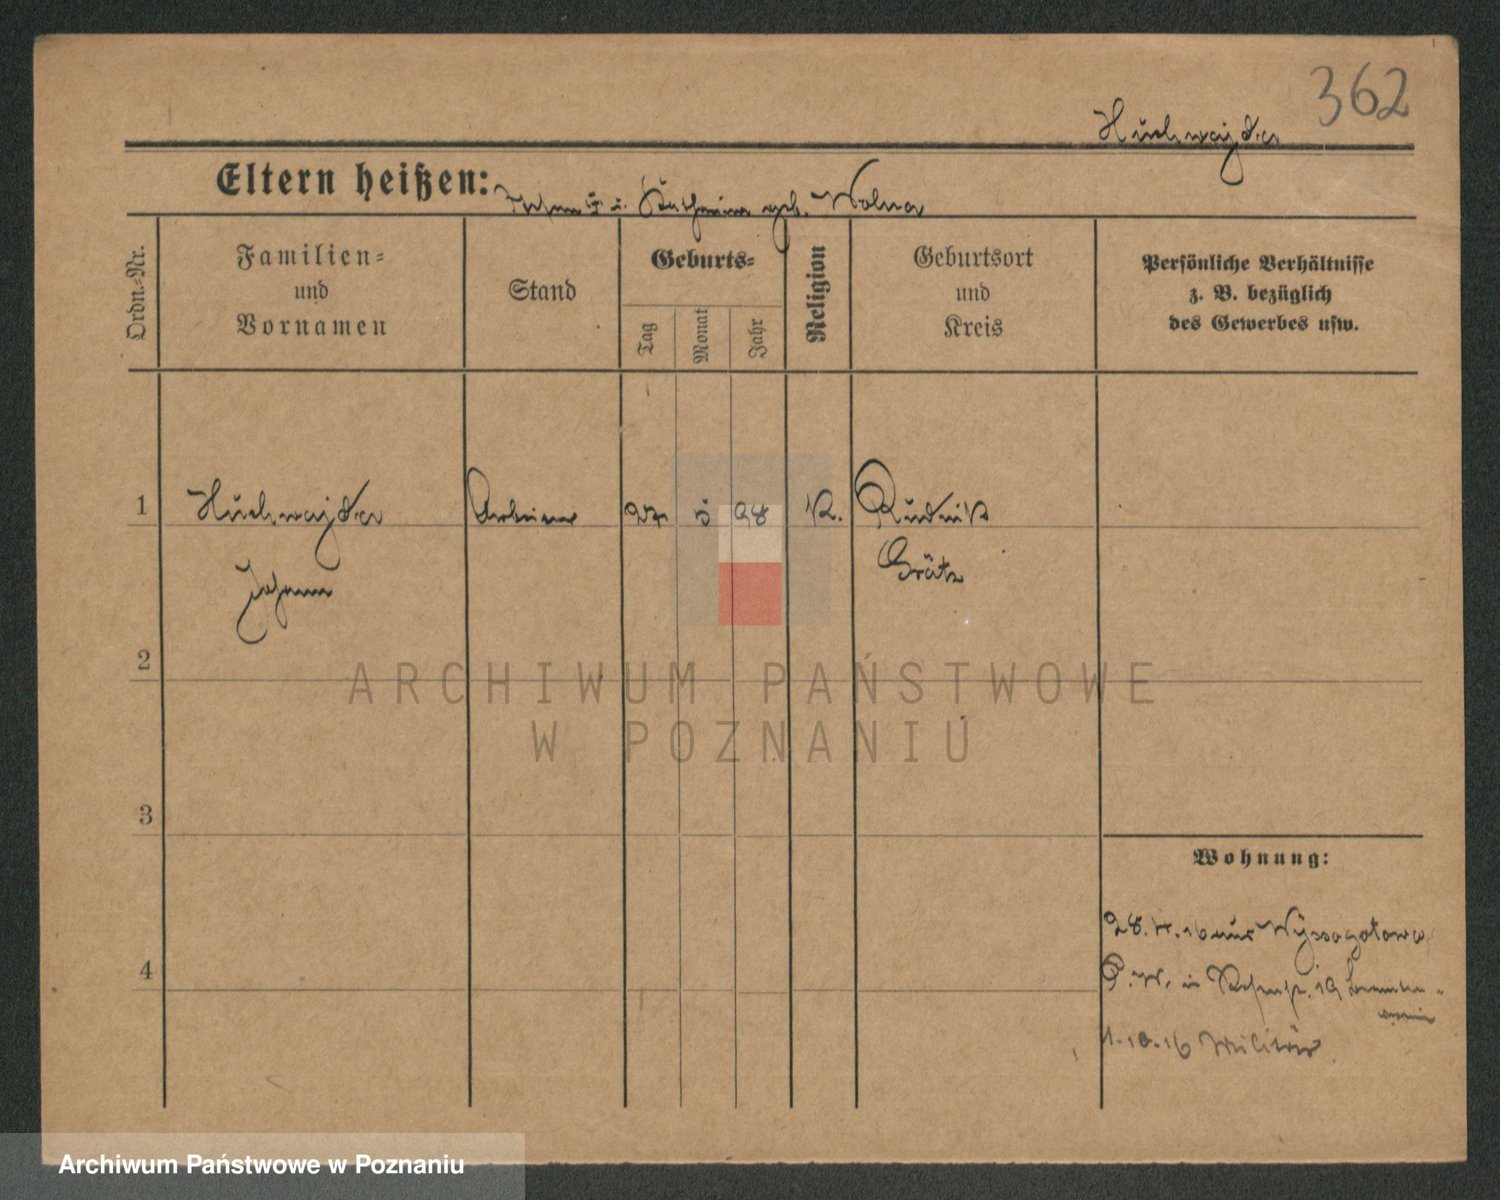 362
Huchwajda
Eltern heißen: Johann u. Katharina geb. Wolna
Ordn.-Nr.
Familien-
und
Vornamen
Stand
Geburts-
Tag
Monat
Jahr
Religion
Geburtsort
und
Kreis
Persönliche Verhältnisse
z. B. bezüglich
des Gewerbes usw.
1
Huchwajda
Johann
Arbeiter
27
5
98
K.
Rudnik
Grätz
2
3
4
Wohnung:
28. 4. 16 aus Wyssogotowo
P. W. in 19
1. 10. 16 Militär
ARCHIWUM PAŃSTWOWE
W POZNANIU
Archiwum Państwowe w Poznaniu